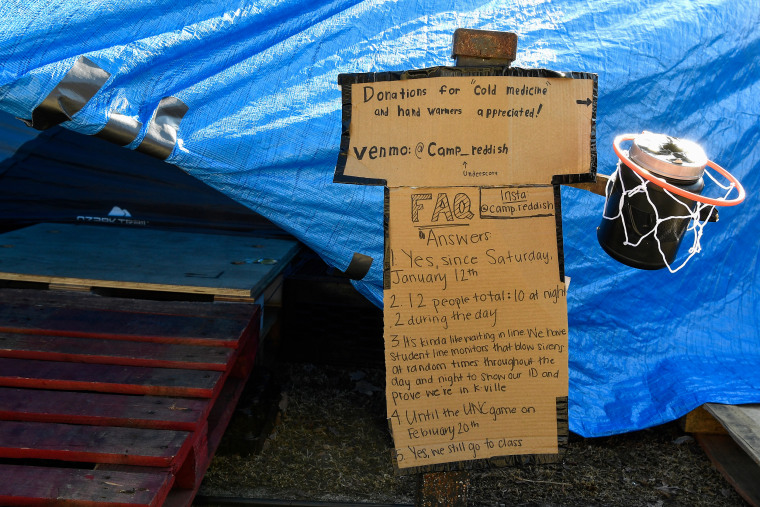 Donations for "Cold medicine"
and hand warmers appreciated!
venmo: @Camp_reddish
↑
Underscore
FAQ
Insta
@camp.reddish
Answers
1 Yes, since Saturday,
January 12th
2. 12 people total: 10 at night
, 2 during the day
3 It's kinda like waiting in line. We have
student line monitors that blow sirens
at random times throughout the
day and night to show our ID and
prove we're in K-ville
4 Until the UNC game on
February 20th
5. Yes, we still go to class
OZARK TRAIL